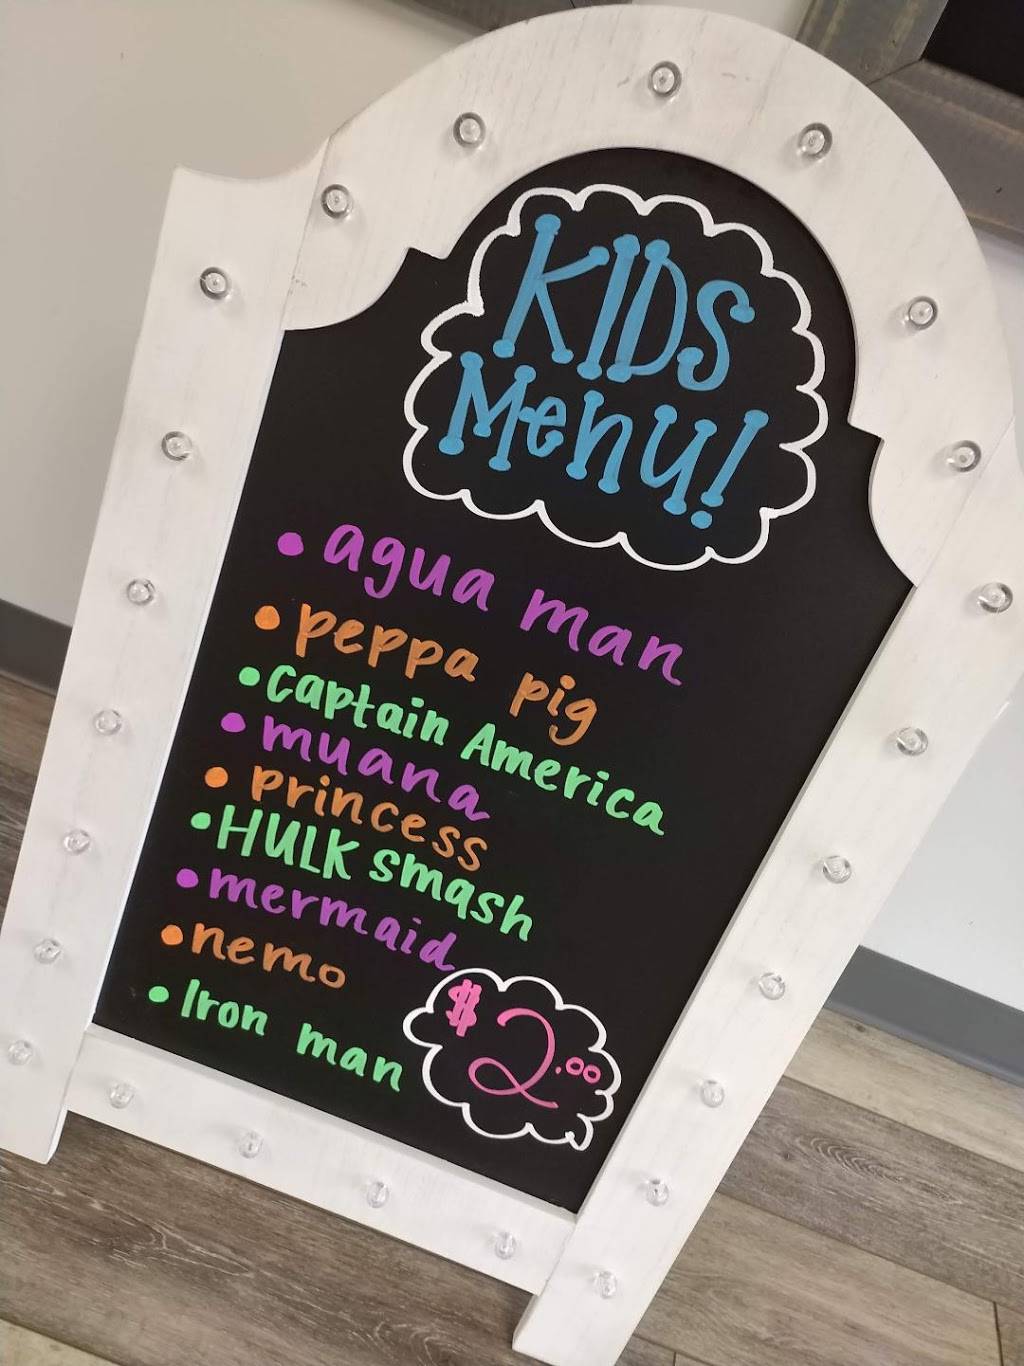 KIDS
Menu!
• agua man
• peppa pig
• Captain America
• muana
• princess
• HULK smash
• mermaid
• nemo
• Iron man
$2.00